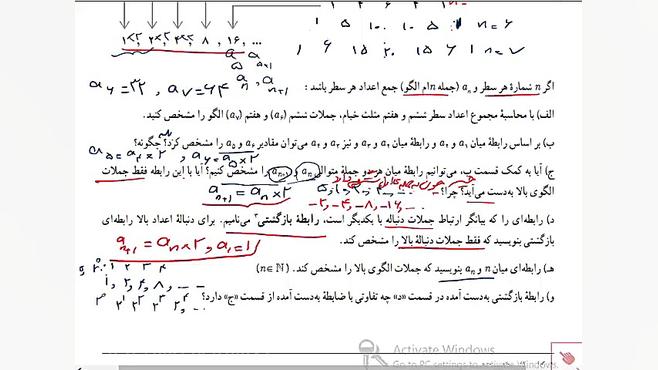 ۱ ۵ ۱۰ ۱۰ ۵ ۱ n=۶
۱×۲, ۲×۲, ۴×۲, ۸ , ۱۶, ...
۱ ۶ ۱۵ ۲۰ ۱۵ ۶ ۱ n=۷
a n , a n+1
اگر n شمارهٔ هر سطر و aₙ (جمله nام الگو) جمع اعداد هر سطر باشد :
a۶=۳۲ , a۷=۶۴
الف) با محاسبهٔ مجموع اعداد سطر ششم و هفتم مثلث خیام، جملات ششم (a۶) و هفتم (a۷) الگو را مشخص کنید.
ب) بر اساس رابطهٔ میان a۱ و a۲ و رابطهٔ میان a۲ و a۳ و نیز a۳ و a۴ می‌توان مقادیر a۵ و a۶ را مشخص کرد؟ چگونه؟
a۵=a۴×۲ , a۶=a۵×۲
ج) آیا به کمک قسمت ب، می‌توانیم رابطهٔ میان هر دو جملهٔ متوالی aₙ و aₙ₊₁ را مشخص کنیم؟ آیا با این رابطه فقط جملات
الگوی بالا به‌دست می‌آید؟ چرا؟
aₙ₊₁=aₙ×۲
-۲,-۴,-۸,-۱۶,...
د) رابطه‌ای را که بیانگر ارتباط جملات دنباله با یکدیگر است، رابطهٔ بازگشتی۲ می‌نامیم. برای دنبالهٔ اعداد بالا رابطه‌ای
بازگشتی بنویسید که فقط جملات دنبالهٔ بالا را مشخص کند.
aₙ₊₁=aₙ×۲, a۱=۱
هـ) رابطه‌ای میان n و aₙ بنویسید که جملات الگوی بالا را مشخص کند. (n∈ℕ)
۱, ۲, ۴, ۸, ...
و) رابطهٔ بازگشتی به‌دست آمده در قسمت «د» چه تفاوتی با ضابطهٔ به‌دست آمده از قسمت «ج» دارد؟
Activate Windows
Go to PC settings to activate Windows.